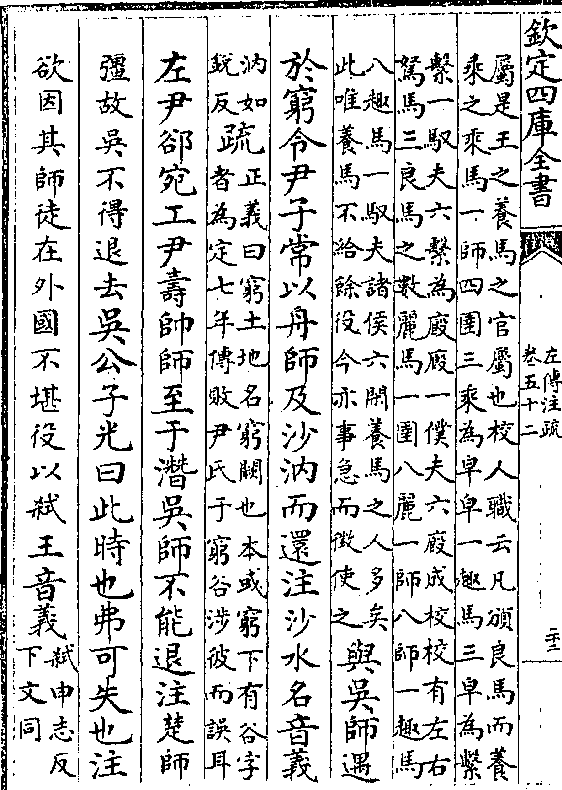 欽定四庫全書
左傳注疏
卷五十二
二十二
屬是王之養馬之官屬也校人職云凡頒良馬而養
乘之乘馬一師四圉三乘為皁皁一趣馬三皁為繫
繫一馭夫六繫為廄廄一僕夫六廄成校校有左右
駑馬三良馬之數麗馬一圉八麗一師八師一趣馬
八趣馬一馭夫諸侯六閑養馬之人多矣
此唯養馬不給餘役今亦事急而徴使之
與吳師遇
於窮令尹子常以舟師及沙汭而還注沙水名音義
汭如
銳反
疏
正義曰窮土地名窮闕也本或窮下有谷字
者為定七年傳敗尹氏于窮谷涉彼而誤耳
左尹郤宛工尹壽帥師至于潛吳師不能退注楚師
彊故吳不得退去吳公子光曰此時也弗可失也注
欲因其師徒在外國不堪役以弒王音義
弒申志反
下文同